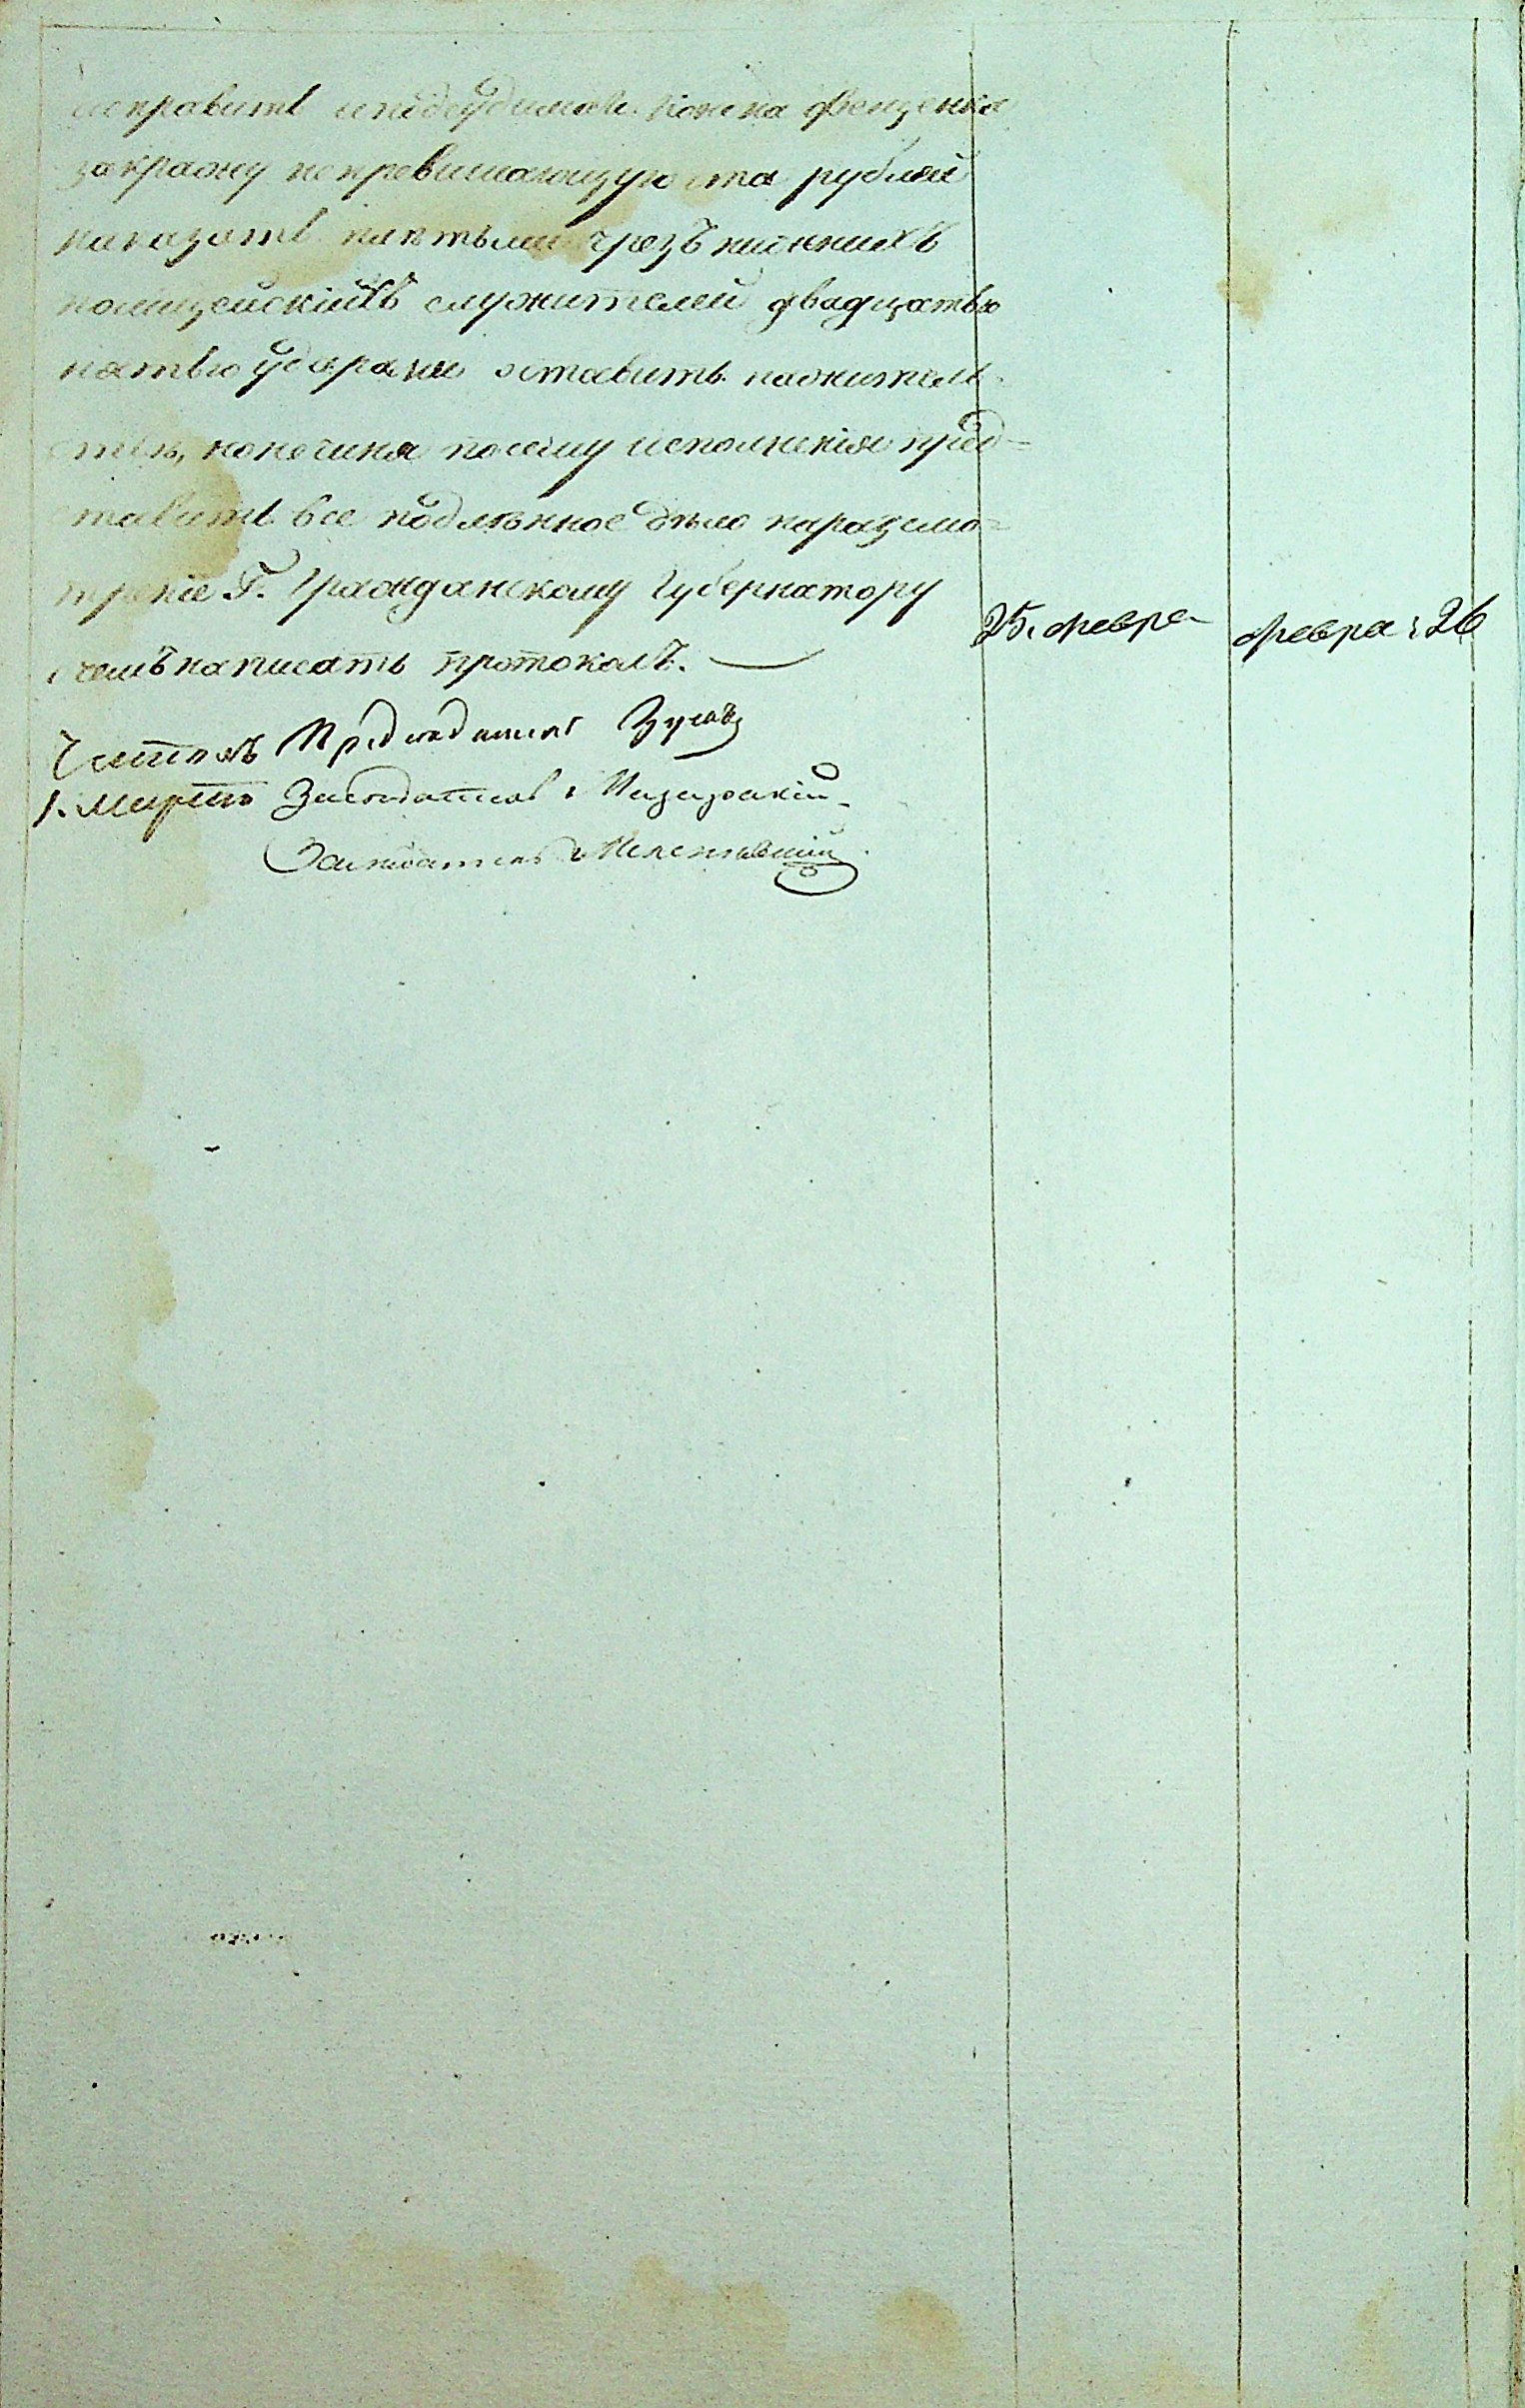 исправить и подсудимаго Фощенка
закражу непревышающую ста рублей
наказать плетьми чрезъ нижнихъ
полицейскихъ служителей двадцатью
пятью ударами оставить нажитель
стве, но нечиня посему исполненія пред=
ставить все подлѣнное дѣло наразсмо=
треніе Г. Гражданскому Губернатору
очемъ написать протоколъ.
25. февра
февра: 26
Предсѣдатель
1. Марта Засѣдатель
Засѣдатель